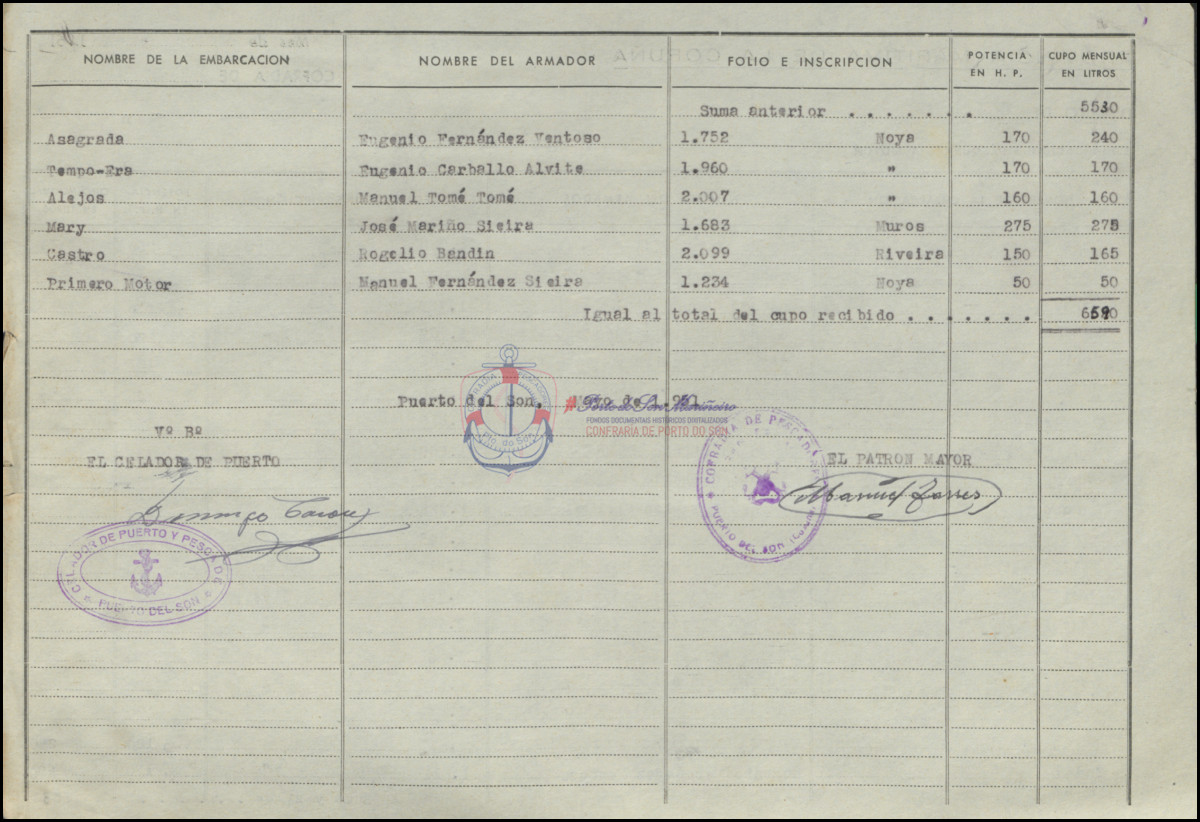 NOMBRE DE LA EMBARCACION NOMBRE DEL ARMADOR FOLIO E INSCRIPCION POTENCIA EN H. P. CUPO MENSUAL EN LITROS
Suma anterior . . . . . . . 5530
Asagrada Eugenio Fernández Ventoso 1.752 Noya 170 240
Tempo-Era Eugenio Carballo Alvite 1.960 " 170 170
Alejos Manuel Tomé Tomé 2.007 " 160 160
Mary José Mariño Sieira 1.683 Muros 275 275
Castro Rogelio Bandin 2.099 Riveira 150 165
Primero Motor Manuel Fernández Sieira 1.234 Noya 50 50
Igual al total del cupo recibido . . . . . . . 6590
Puerto del Son, Mayo de
Porto do Son Mariñeiro
FONDOS DOCUMENTAIS HISTÓRICOS DIGITALIZADOS
CONFRARIA DE PORTO DO SON
Pto. do Son
Vº Bº
EL CELADOR DE PUERTO
EL PATRON MAYOR
Domingo
Manuel Torres
CELADOR DE PUERTO Y PESCA DE
PUERTO DEL SON
COFRADIA DE PESCADORES
PUERTO DEL SON